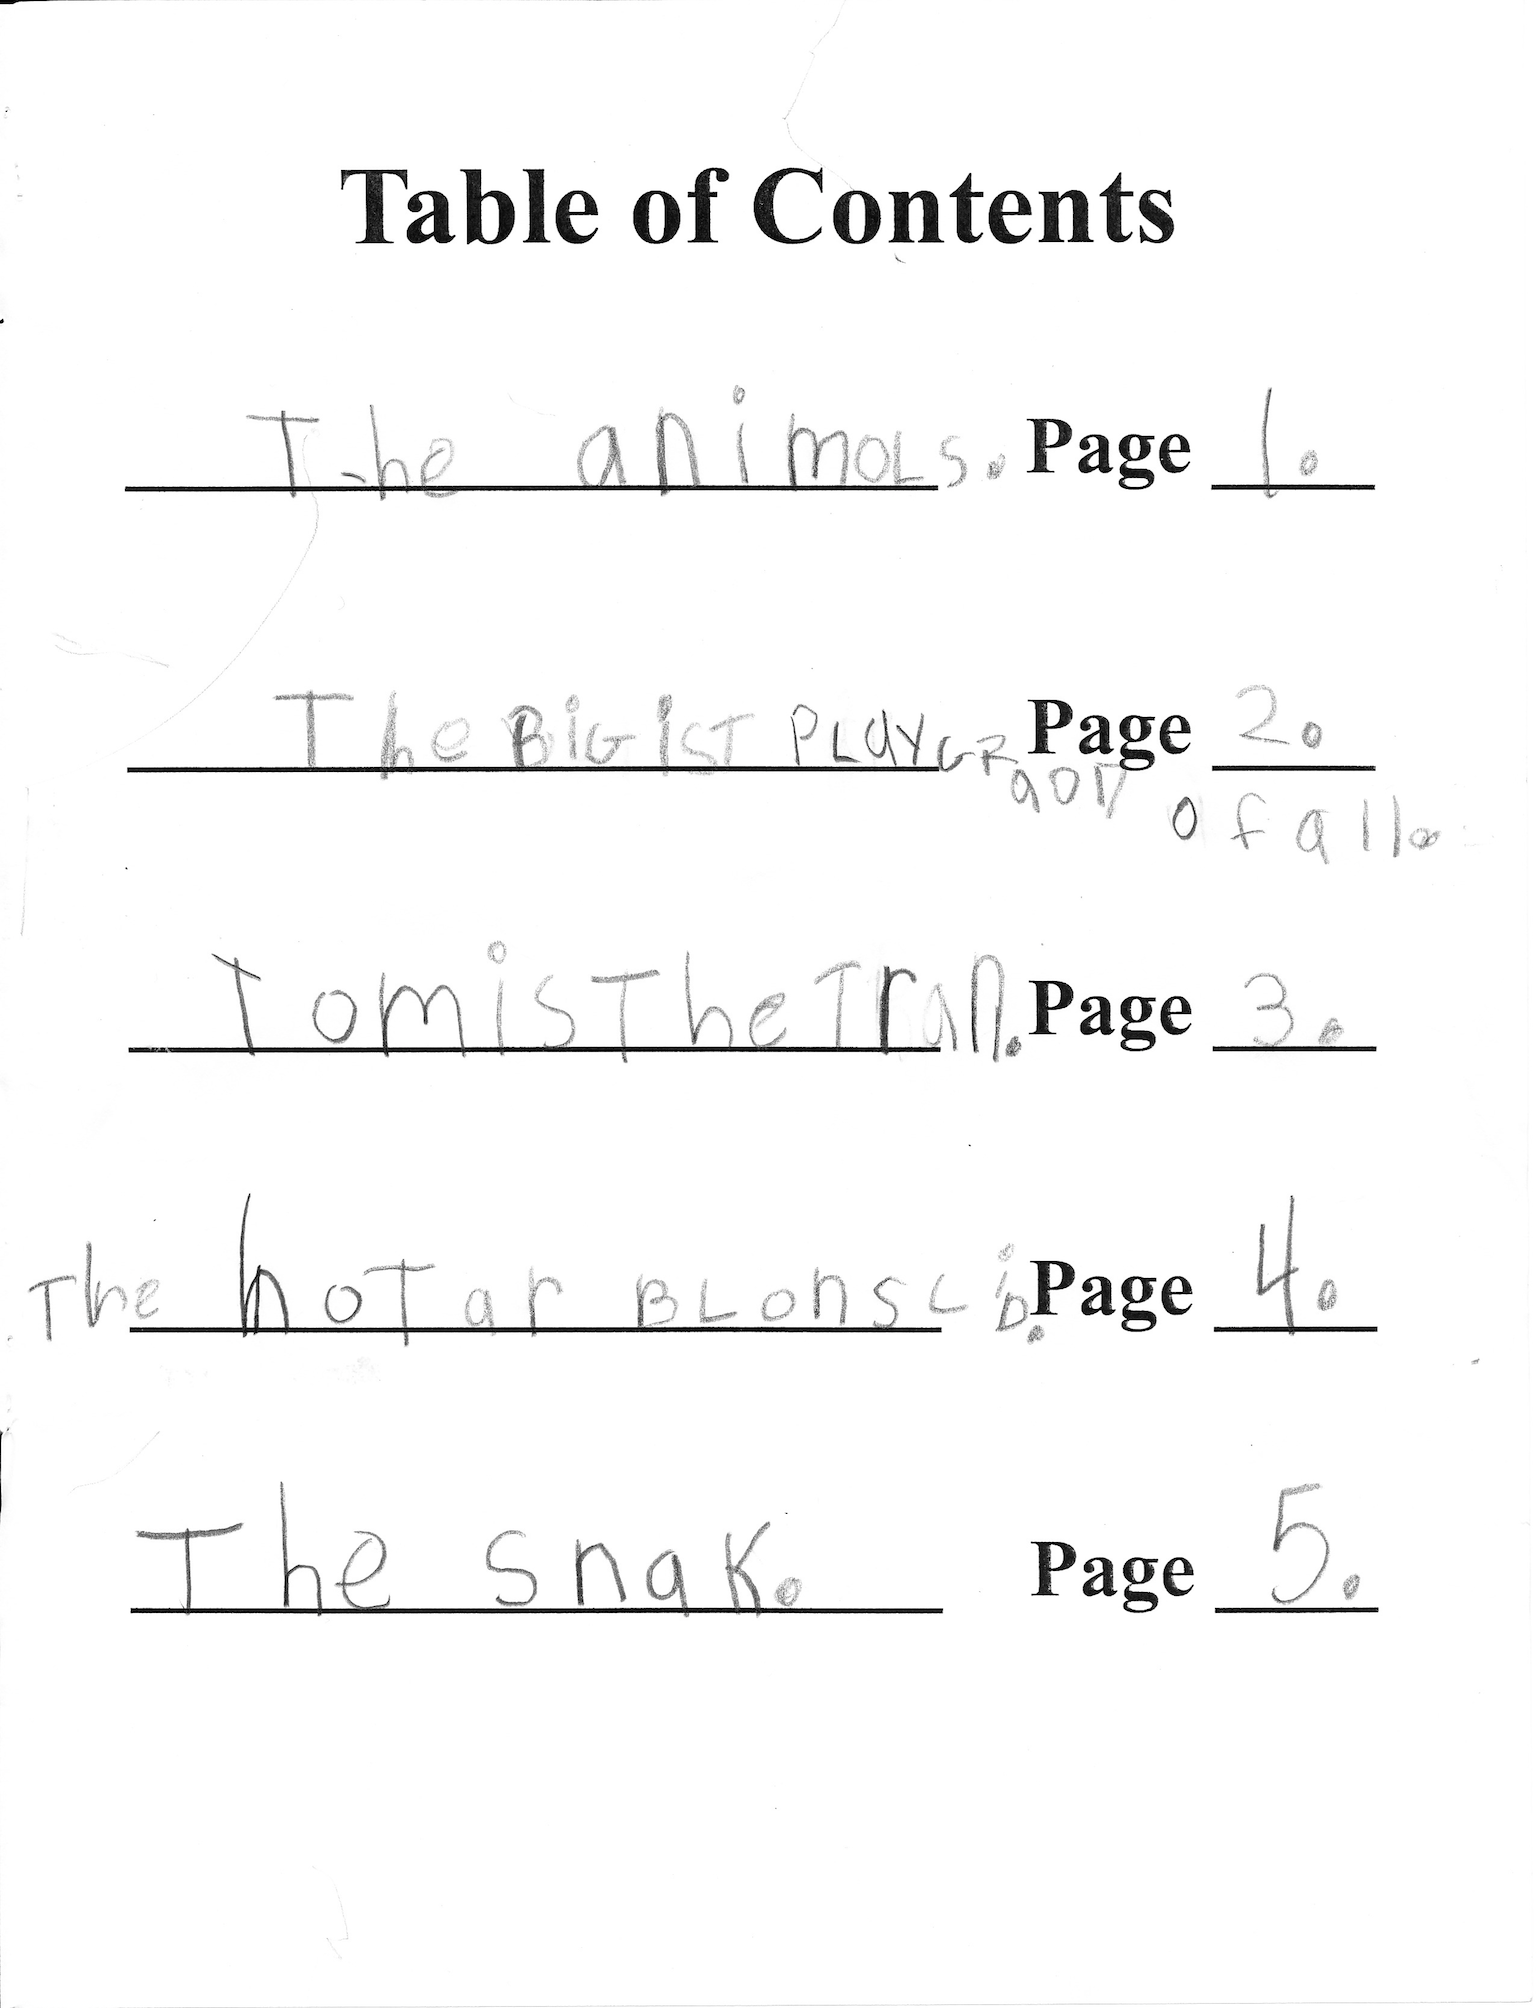 Table of Contents
The animols. Page 1.
The BiGisT PLayGR Page 2.
aon of all.
TomisTheTran. Page 3.
The hoT ar BLonsLiD. Page 4.
The snak. Page 5.